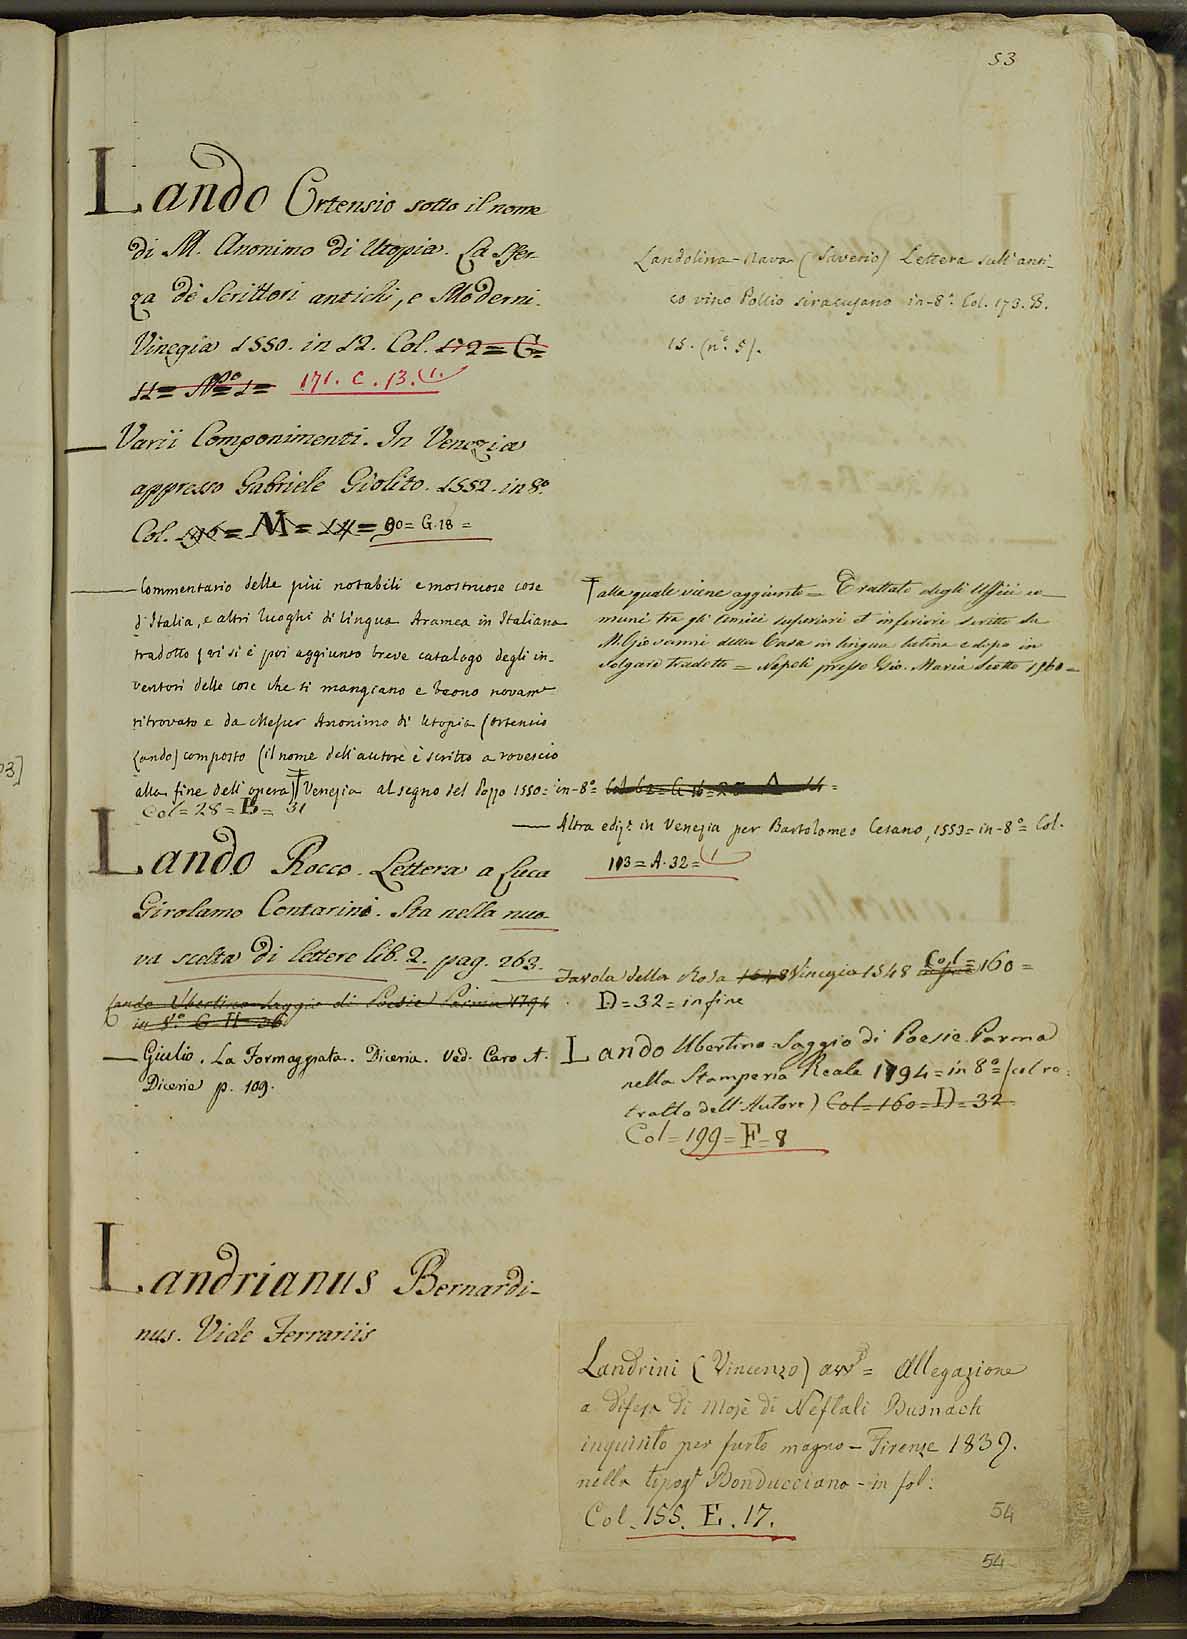 53
Lando Ortensio sotto il nome
di M. Anonimo di Utopia. La Sfer-
za dè Scrittori antichi, e Moderni.
Vinegia 1550. in 12. Col. 172 = G =
11 = No. 1 = 171. C. 13. (1.
— Varii Componimenti. In Venezia
appresso Gabriele Giolito. 1552. in 8o.
Col. 196 = M = 14 = 90 = G. 18 =
— Commentario delle più notabili e mostruose cose
d'Italia, e altri luoghi di lingua Aramea in Italiana
tradotto, vi si è poi aggiunto breve catalogo degli in-
ventori delle cose che si mangiano e beono novame
ritrovato e da Messer Anonimo di Utopia (Ortensio
Lando) composto (il nome dell'autore è scritto a rovescio
alla fine dell'opera) Venezia al segno del Pozzo 1550 = in-8o =
Col = 28 = B = 31
Lando Rocco. Lettera a Luca
Girolamo Contarini. Sta nella nuo-
va scelta di lettere lib. 2. pag. 263.
Lando Ubertino Saggio di Poesie Parma 1794
in 8o. G H = 36
— Giulio. La Formaggiata. Diceria. Ved. Caro A.
Dicerie p. 109.
Landrianus Bernardi-
nus. Vide Ferrariis
Landolina-Nava (Saverio) Lettera sull'anti-
co vino Pollio siracusano in-8o. Col. 173. B.
15. (no. 5).
alle quale viene aggiunto = Trattato degli Uffici co-
muni tra gli amici superiori et inferiori scritto da
M. Giovanni della Casa in lingua latina e dopo in
volgare tradotto = Napoli presso Gio. Maria Scotto 1560 =
— Altra ediz. in Venezia per Bartolomeo Cesano, 1553 = in-8o = Col.
113 = A. 32 = (1
— Tavola della Rosa 1648 Vinegia 1548 Col = 160 =
D = 32 = in fine
Lando Ubertino Saggio di Poesie. Parma
nella Stamperia Reale 1794 = in 8o = (col ri-
tratto dell'Autore) Col = 160 = D = 32
Col = 199 = F = 8
Landrini (Vincenzo) avvo = Allegazione
a difesa di Mosè di Neftali Busnach
inquisito per furto magno - Firenze 1839.
nella tipogr Bonducciana - in fol:
Col. 155. E. 17.
54
54